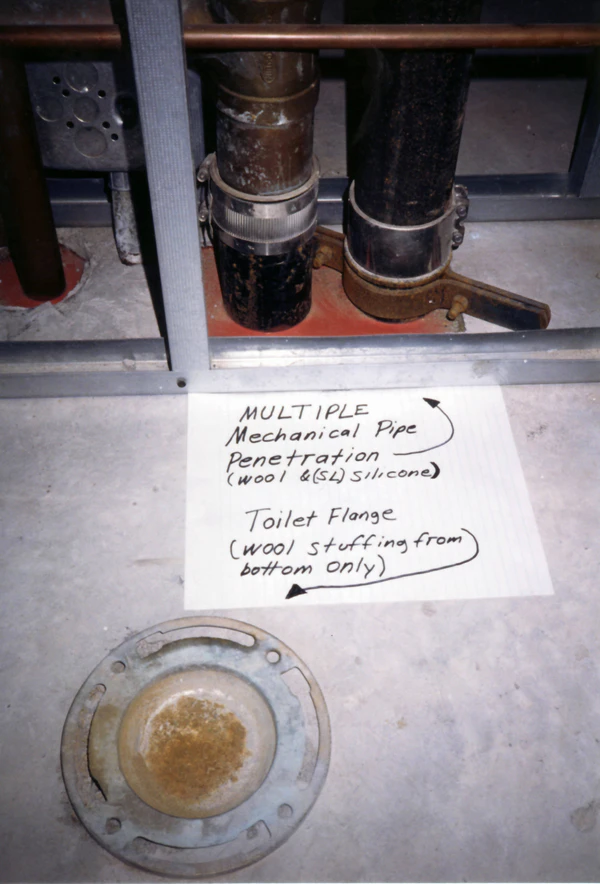 MULTIPLE
Mechanical Pipe
Penetration
(wool &(SL) silicone)
Toilet Flange
(wool stuffing from
bottom only)